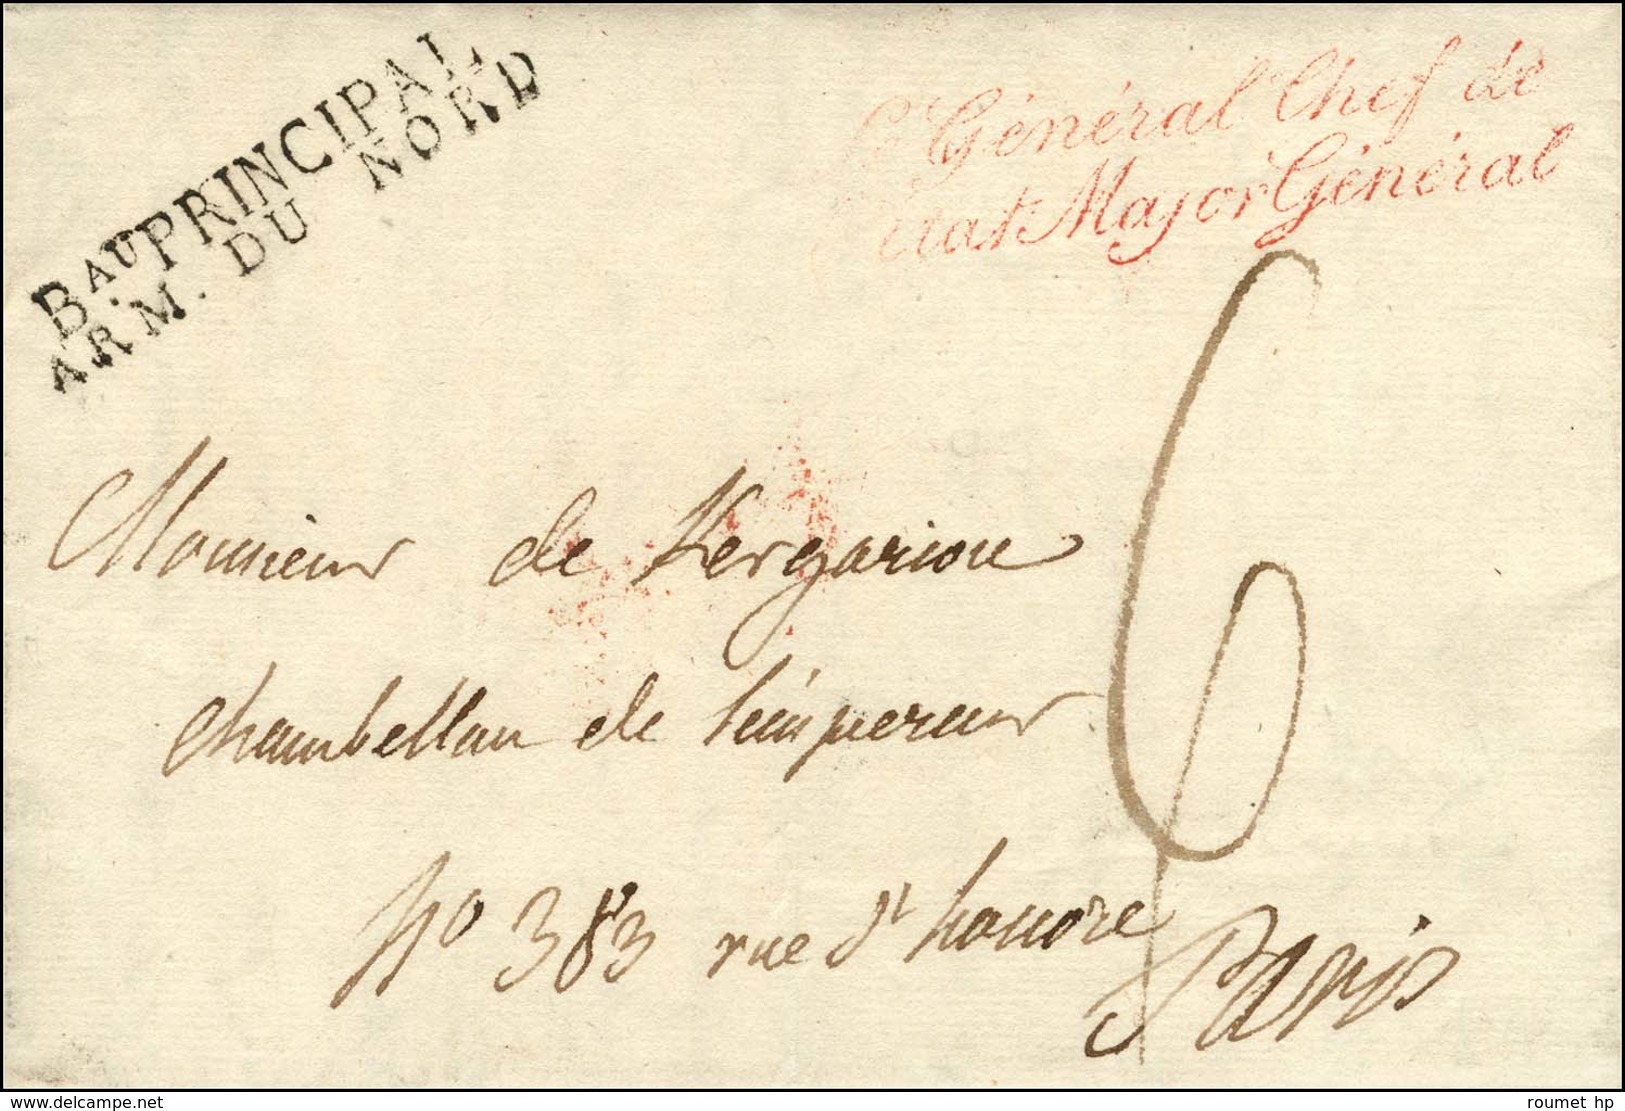 BAU PRINCIPAL
ARM. DU NORD
Général Chef de
Etat Major Général
6
Monsieur de Kergariou
chambellan de l'empereur
No 383 rue St honore
Paris
www.delcampe.net
roumet hp